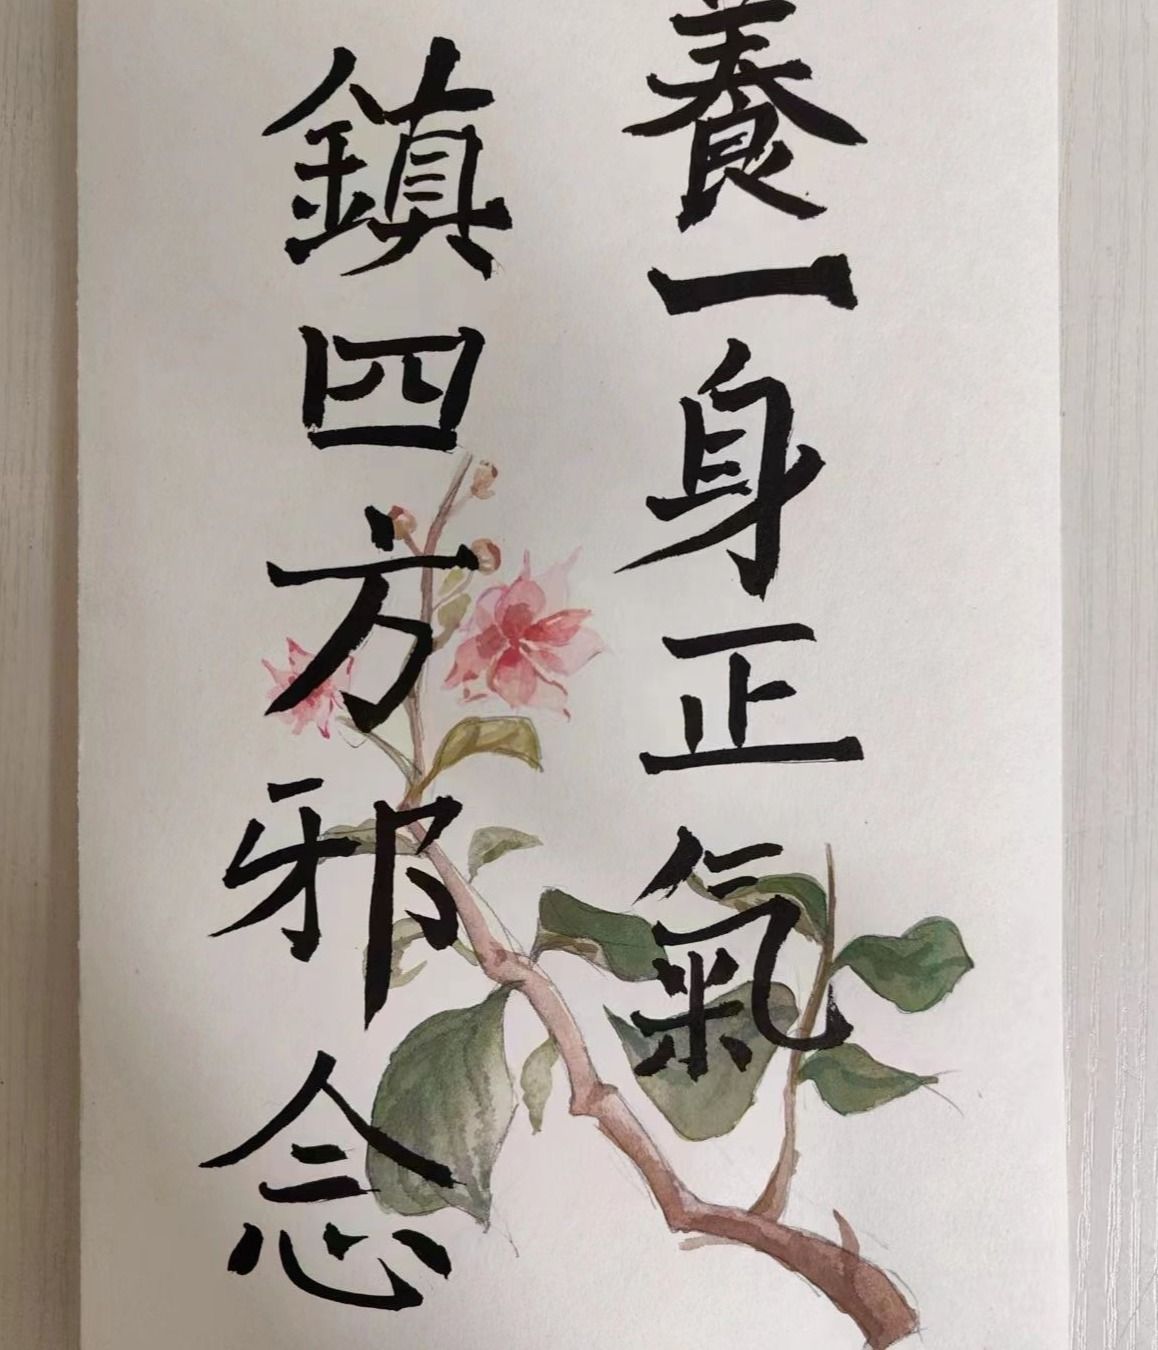 養一身正氣
鎮四方邪念